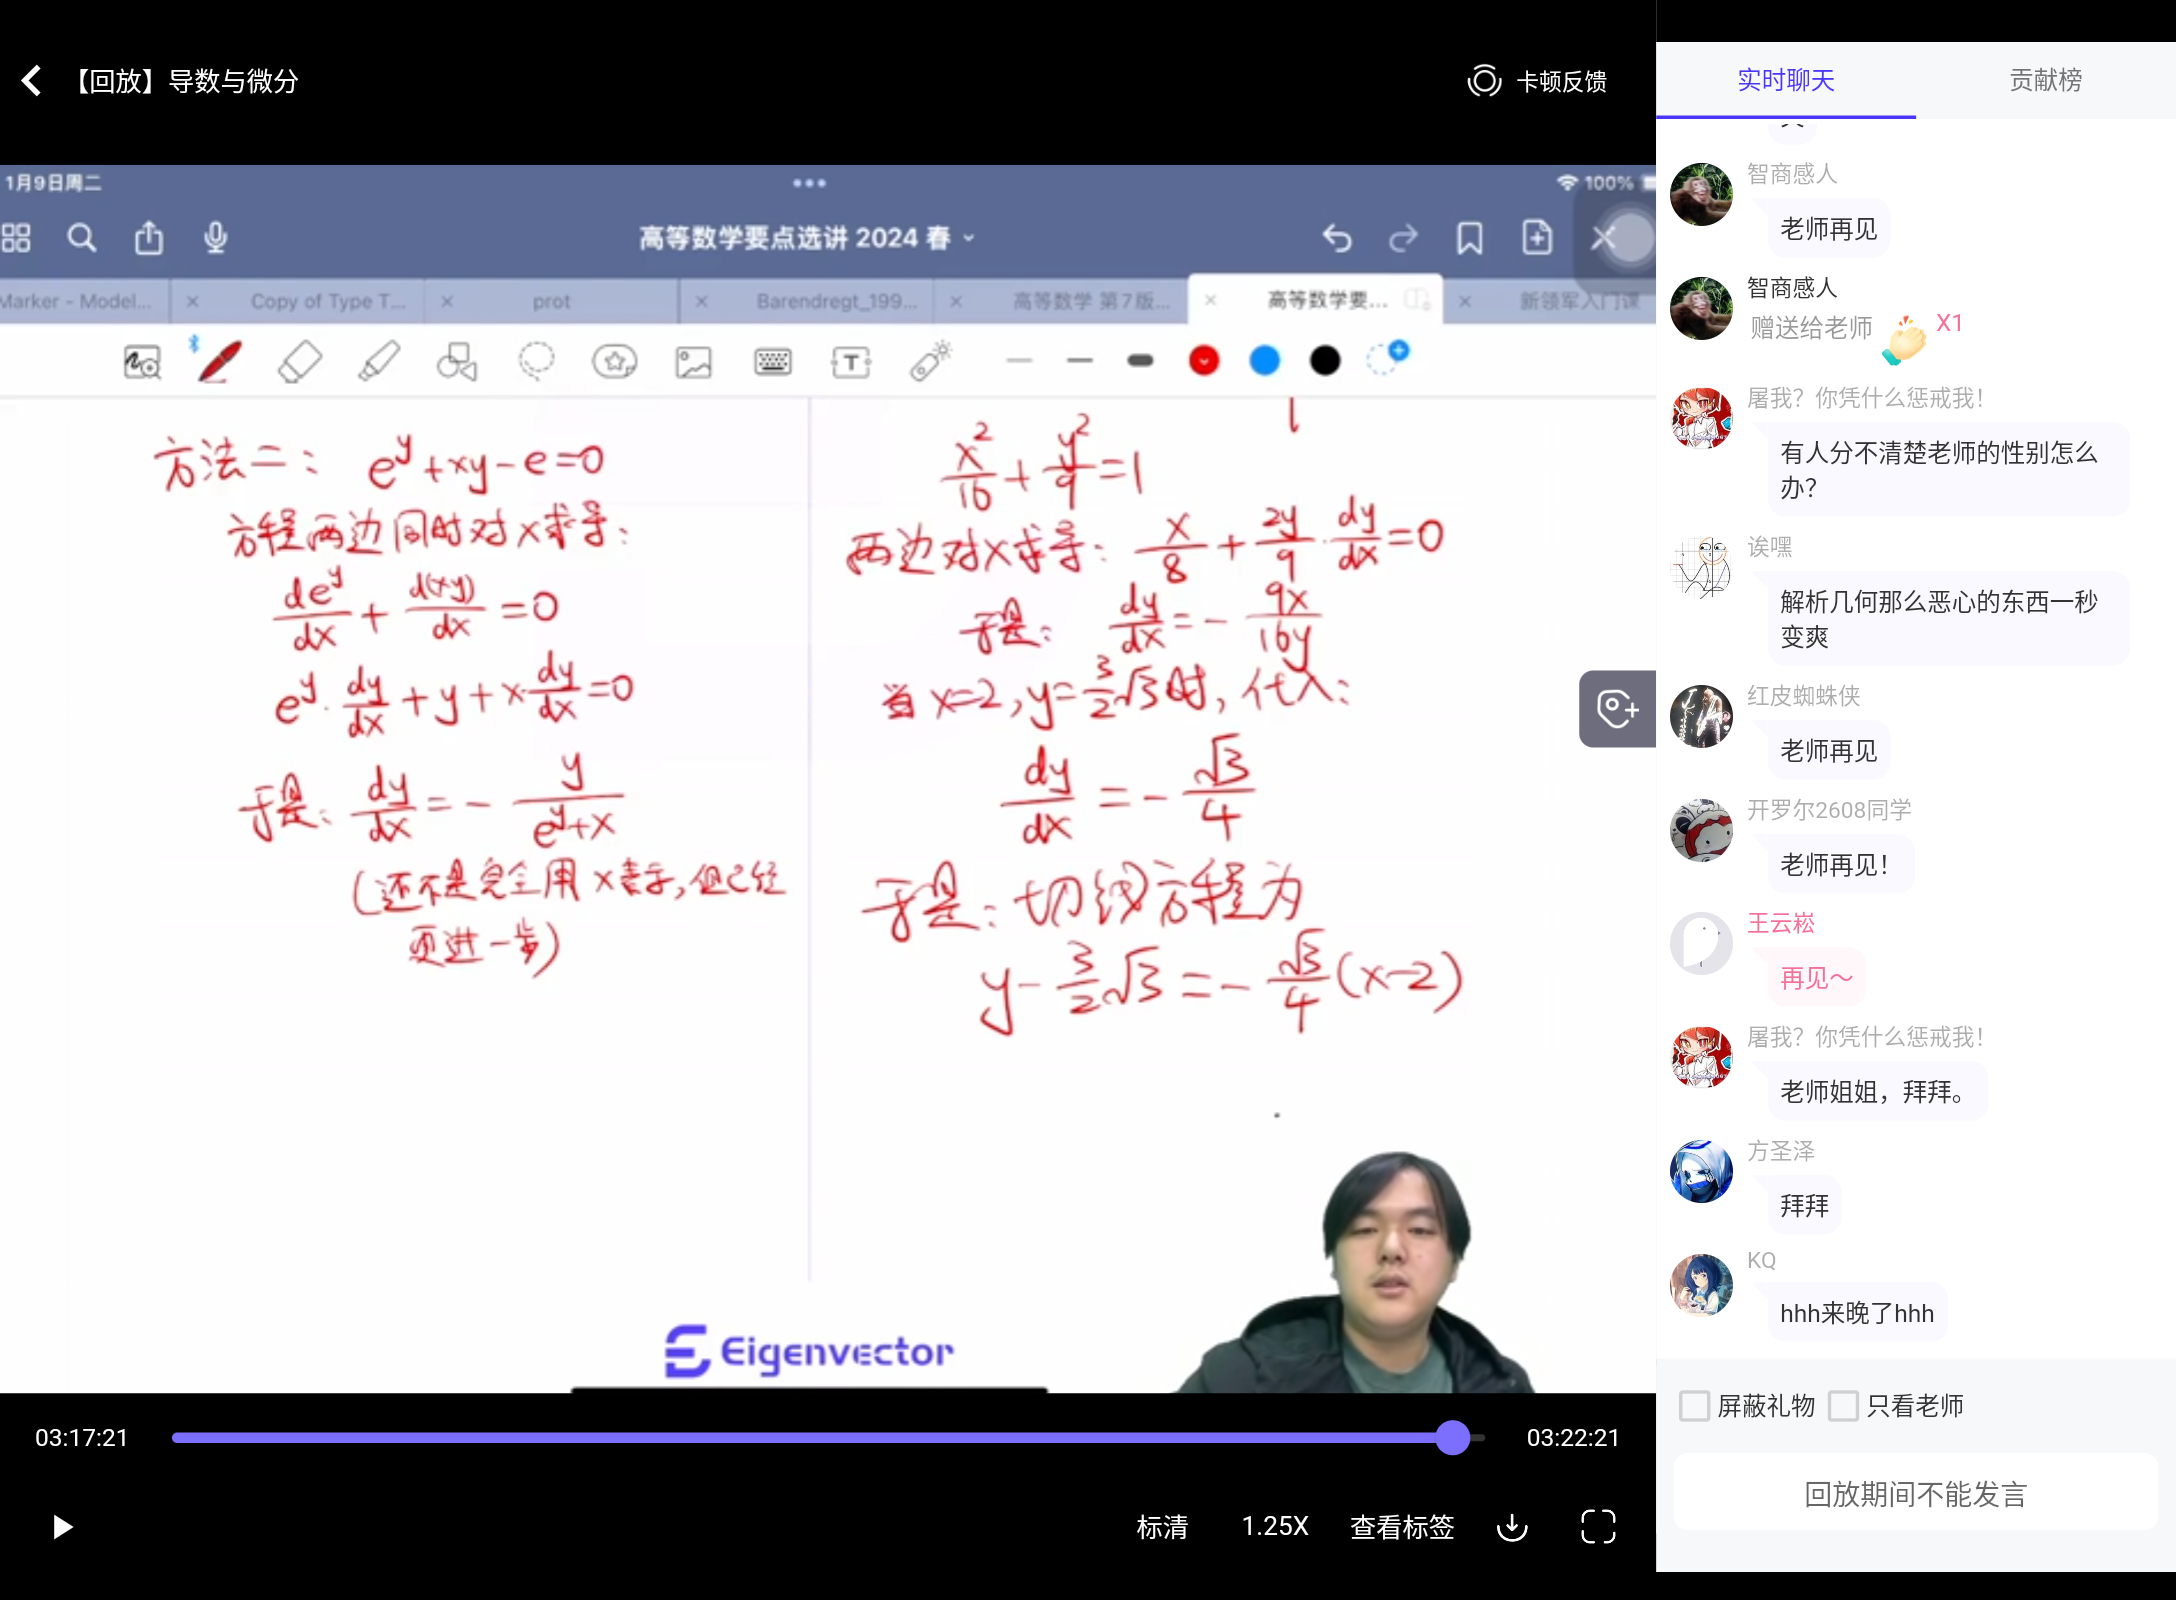 【回放】导数与微分
卡顿反馈
1月9日周二
100%
高等数学要点选讲 2024 春
Marker - Model...
Copy of Type T...
prot
Barendregt_199...
高等数学 第7版...
高等数学要...
新领军入门课
方法二： e^y+xy-e=0
方程两边同时对x求导：
de^y/dx + d(xy)/dx =0
e^y·dy/dx+y+x·dy/dx=0
于是：dy/dx=-y/(e^y+x)
(还不是完全用x表示,但已经
更进一步)
x²/16+y²/9=1
两边对x求导：x/8+2y/9·dy/dx=0
于是：dy/dx=-9x/16y
当x=2,y=3/2√3时,代入：
dy/dx=-√3/4
于是：切线方程为
y-3/2√3=-√3/4(x-2)
Eigenvector
03:17:21
03:22:21
标清
1.25X
查看标签
实时聊天
贡献榜
智商感人
老师再见
智商感人
赠送给老师 X1
屠我？你凭什么惩戒我！
有人分不清楚老师的性别怎么
办？
诶嘿
解析几何那么恶心的东西一秒
变爽
红皮蜘蛛侠
老师再见
开罗尔2608同学
老师再见！
王云崧
再见～
屠我？你凭什么惩戒我！
老师姐姐，拜拜。
方圣泽
拜拜
KQ
hhh来晚了hhh
屏蔽礼物
只看老师
回放期间不能发言